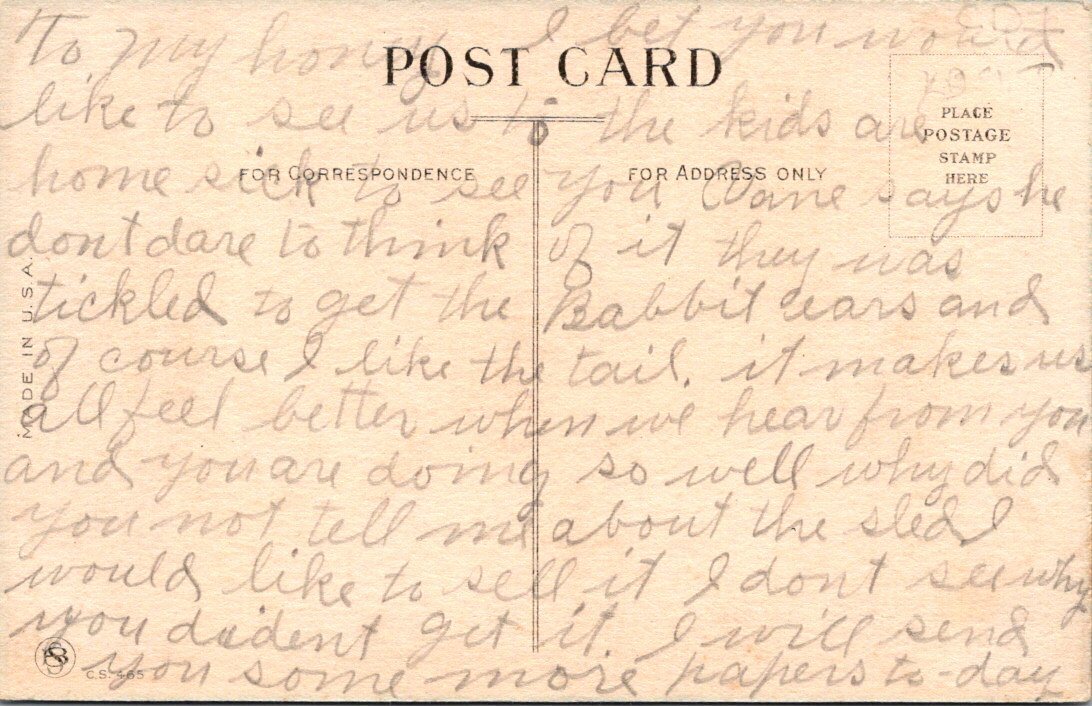 To my honey I bet you would
POST CARD
like to see us to the kids are
PLACE
POSTAGE
STAMP
HERE
FOR CORRESPONDENCE
FOR ADDRESS ONLY
home sick to see you says he
dont dare to think of it they was
tickled to get the Babbit ears and
of course I like the tail. it makes us
all feel better when we hear from you
and you are doing so well why did
you not tell me about the sled I
would like to sell it I dont see why
you dident get it I will send
you some more papers to-day
MADE IN U.S.A.
C.S. 465